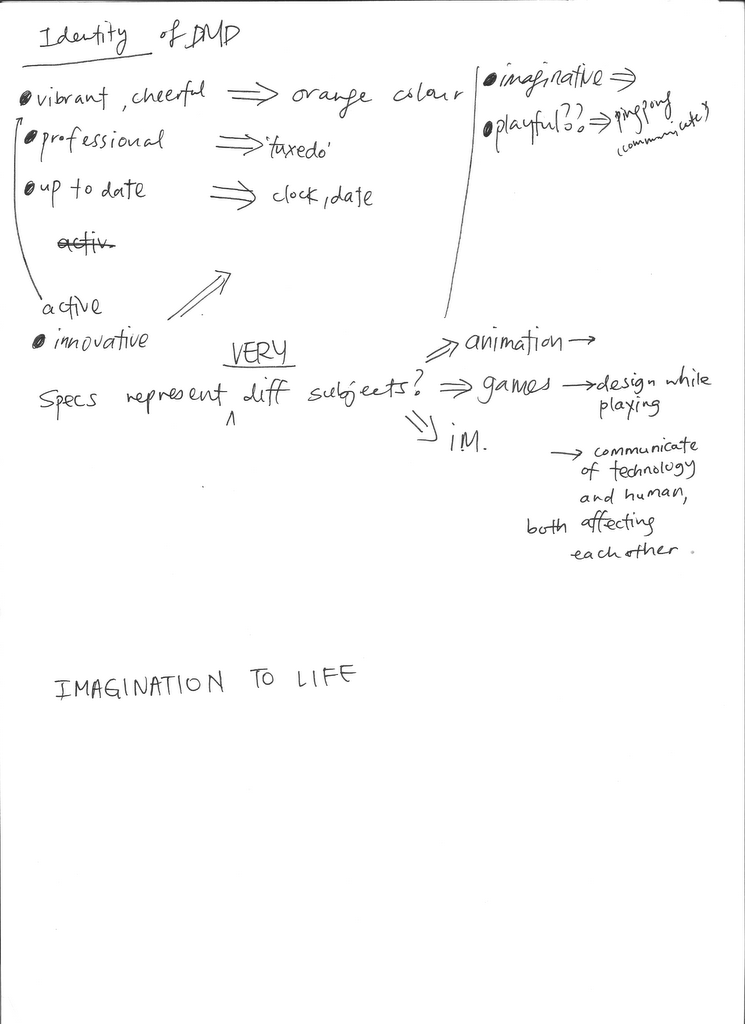 Identity of DMD
• vibrant, cheerful ⇒ orange colour
• professional ⇒ 'tuxedo'
• up to date ⇒ clock, date
activ.
active
• innovative
• imaginative ⇒
• playful?? ⇒ pingpong
(communicate)
VERY
Specs represent ^ diff subjects? ⇒ games → design while
playing
⇒ animation →
⇒ i.M.
→ communicate
of technology
and human,
both affecting
each other.
IMAGINATION TO LIFE